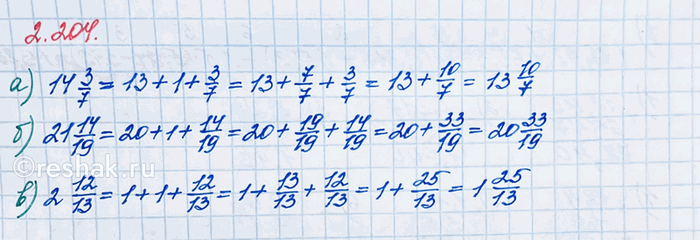 2.204.
а) 14 3/7 = 13 + 1 + 3/7 = 13 + 7/7 + 3/7 = 13 + 10/7 = 13 10/7
б) 21 14/19 = 20 + 1 + 14/19 = 20 + 19/19 + 14/19 = 20 + 33/19 = 20 33/19
в) 2 12/13 = 1 + 1 + 12/13 = 1 + 13/13 + 12/13 = 1 + 25/13 = 1 25/13
©reshak.ru